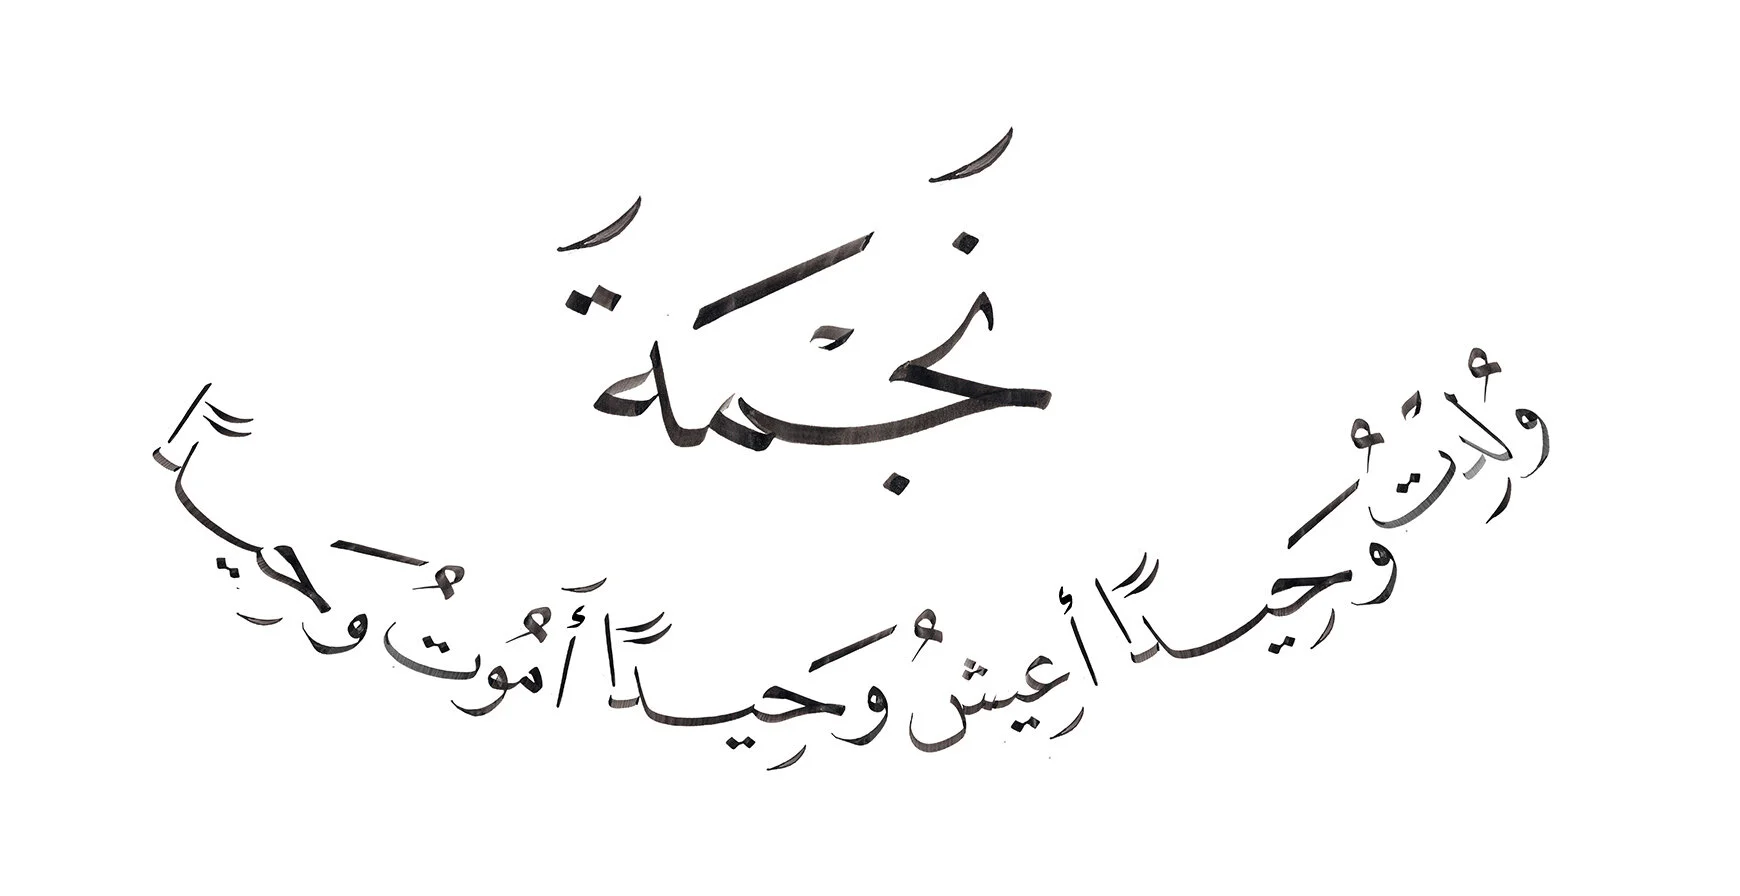 نَجْمَةَ
وُلِدْتُ وَحِيدًا أعِيشُ وَحِيدًا أَمُوتُ وَحِيداً